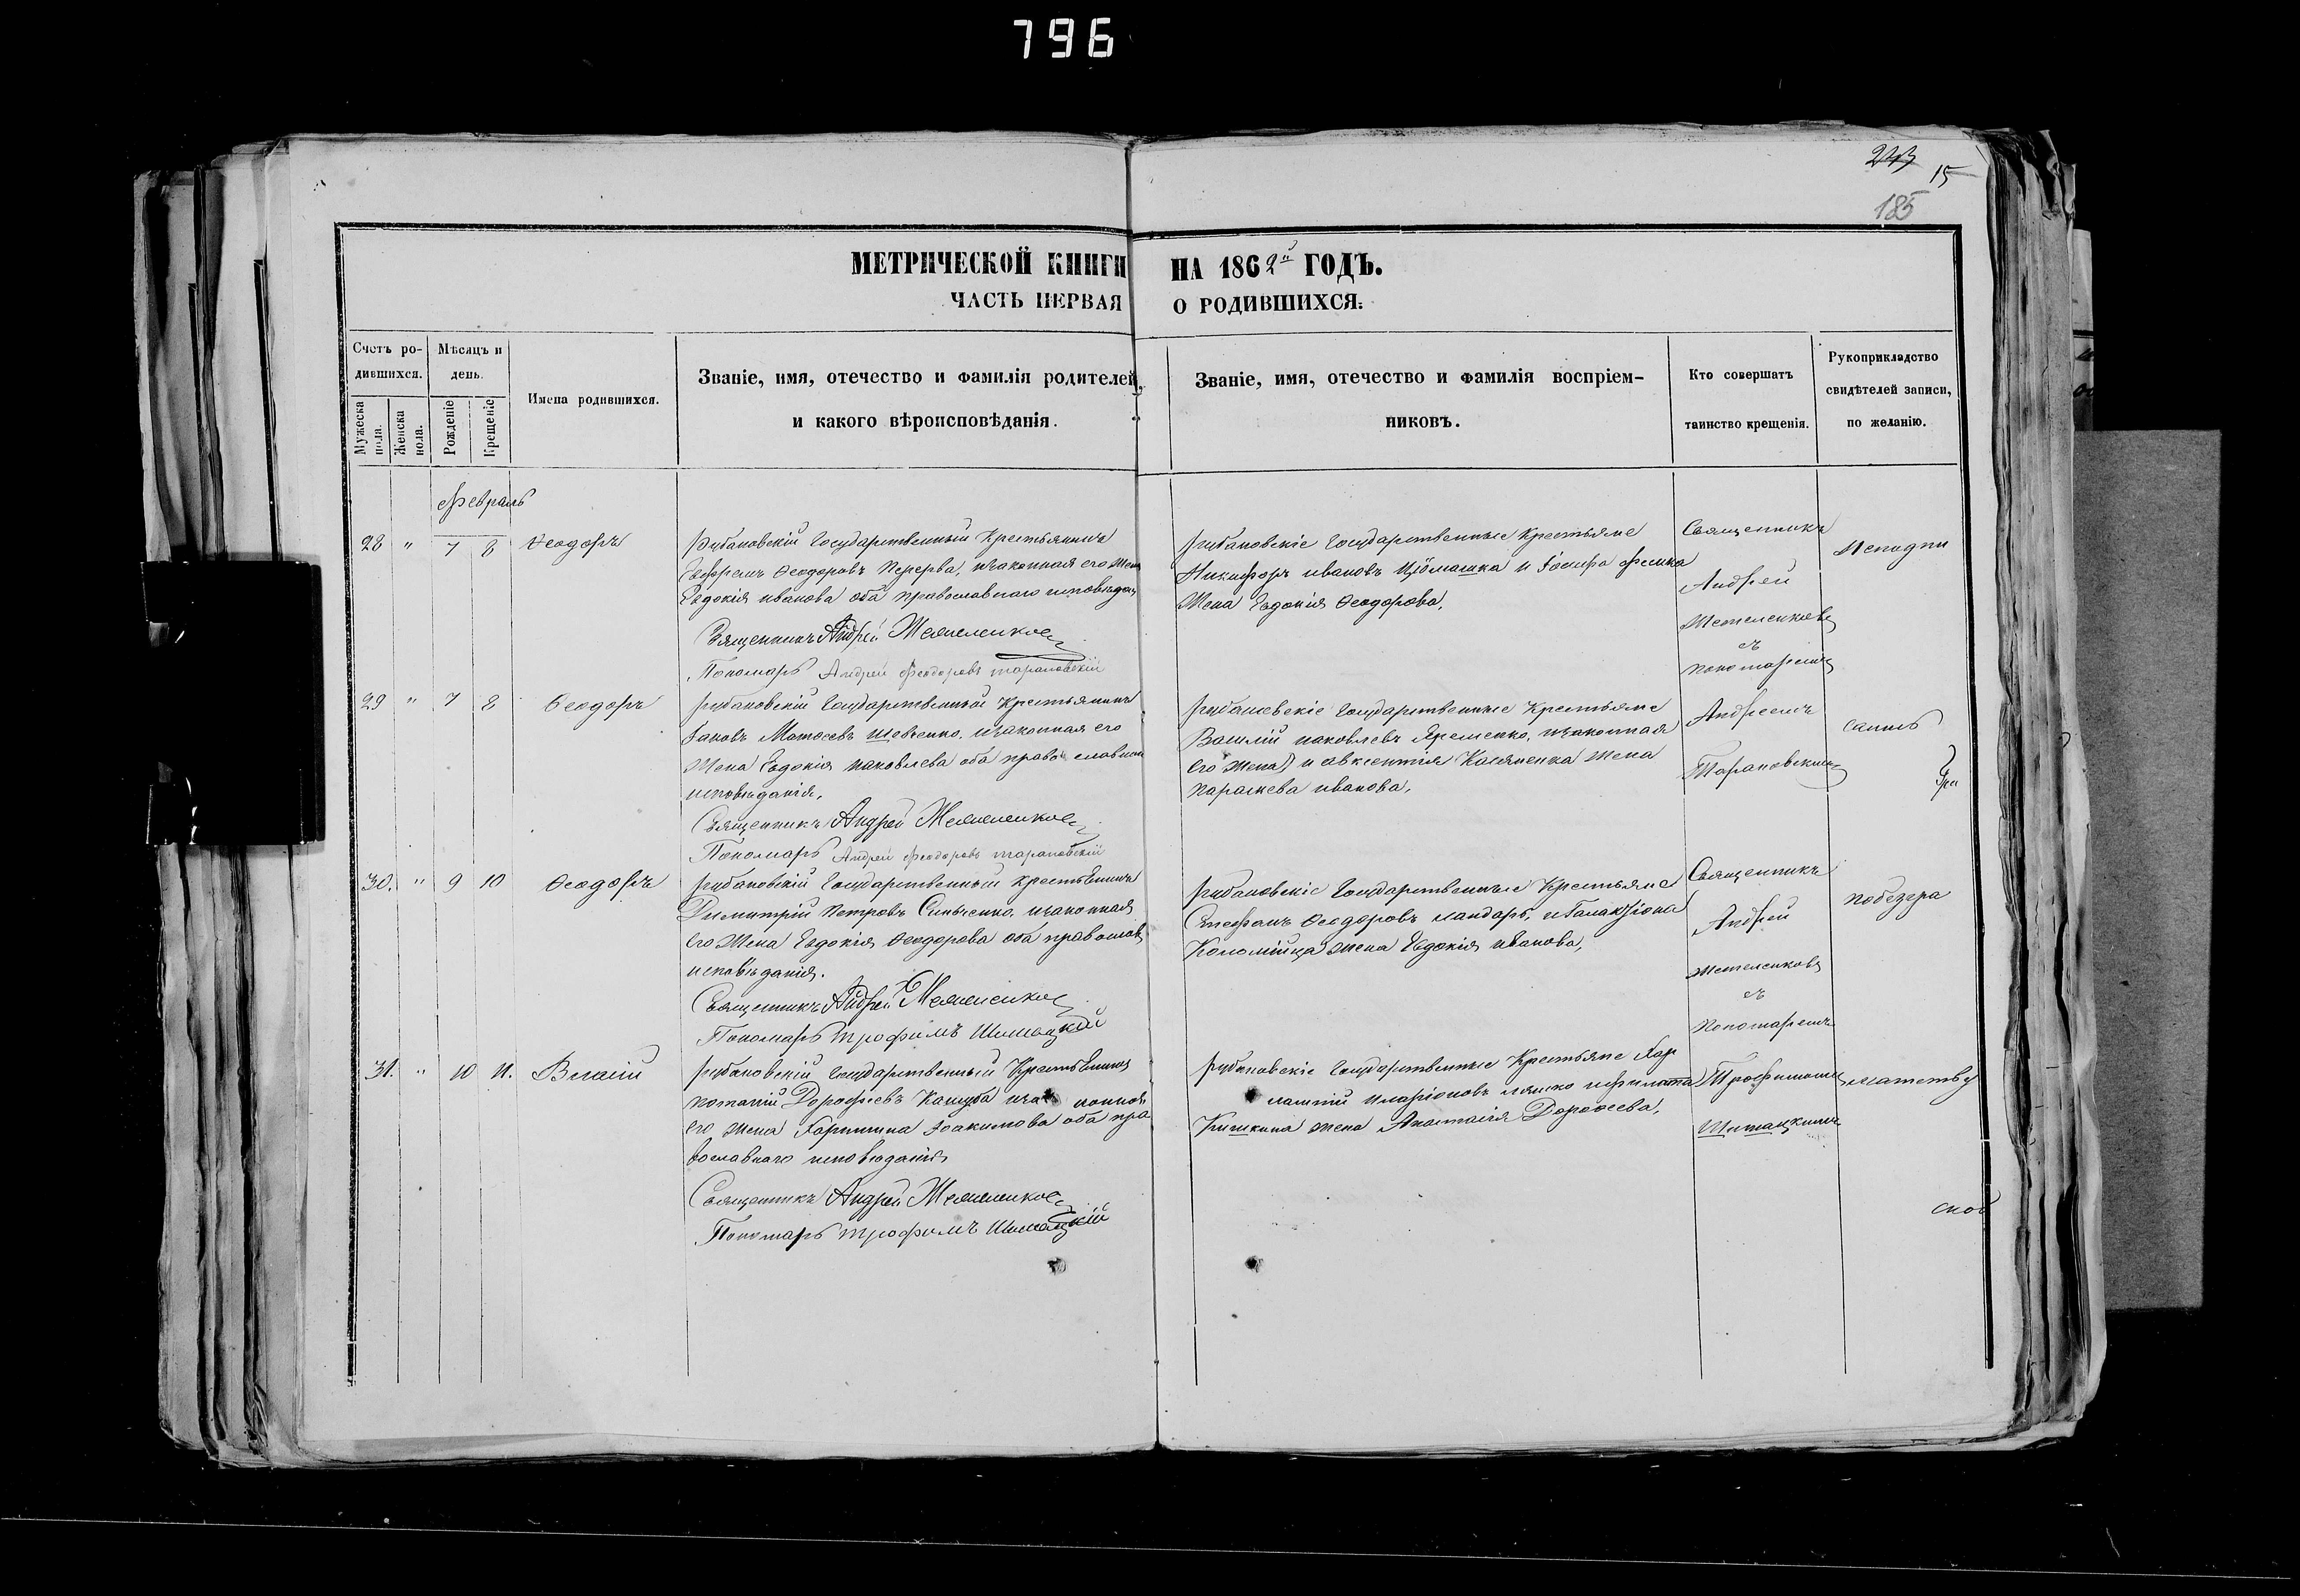 796
243 15
185
МЕТРИЧЕСКОЙ КНИГИ НА 1862й ГОДЪ.
ЧАСТЬ ПЕРВАЯ О РОДИВШИХСЯ.
Счетъ ро-
дившихся.
Мужеска пола.
Женска пола.
Мѣсяцъ и
день.
Рожденіе
Крещеніе
Имена родившихся.
Званіе, имя, отечество и фамилія родителей,
и какого вѣроисповѣданія.
Званіе, имя, отечество и фамилія воспріем-
никовъ.
Кто совершатъ
таинство крещенія.
Рукоприкладство
свидѣтелей записи,
по желанію.
Февраль
28 " 7 8 Ѳеодоръ
Рубановскій Государственный Крестьянинъ
Ефремъ Ѳеодоровъ Перерва, изаконная его жена
Евдокія иванова оба православнаго исповѣдан
Священникъ Андрей Метеленков
Пономарь Андрей Феодоровъ тарановскій
рубановскіе Государственные Крестьяне
Никифоръ ивановъ и
Жена Евдокія Ѳеодорова,
Священникъ
Андрей
Метеленковъ
съ
пономаремъ
29 " 7 8 Ѳеодоръ
рубановскій Государственный Крестьянинъ
Іаковъ Матѳеевъ шевченко, изаконная его
Жена Евдокія иаковлева оба право славнаго
исповѣданія,
Священникъ Андрей Метеленков
Пономарь Андрей Феодоровъ тарановскій
рубановскіе Государственные Крестьяне
Василій иаковлевъ Яременко, изаконная
его жена) и авксентія Касяненка жена
параскева иванова,
Андреемъ
Тарановскимъ
30. " 9 10 Ѳеодоръ
рубановскій Государственный крестьянинъ
Димитрій Петровъ Синьченко, изаконная
его Жена Евдокія Ѳеодорова оба православ
исповѣданія.
Священникъ Андрей Метеленков
Пономарь трофимъ Шимацкій
рубановскіе Государственные Крестьяне
Стефанъ Ѳеодоровъ сландарь, и Галактіона
Коломійца жена Евдокія иванова,
Священникъ
Андрей
Метеленковъ
съ
Пономаремъ
31. " 10 11. Власій
рубановскій Государственный Крестьянинъ
потапій Дороѳеевъ Кашуба изак конная
его Жена Іоакимова оба пра
вославнаго исповѣданія
Священникъ Андрей Метеленков
Пономарь трофимъ Шимацкій
рубановскіе Государственные Крестьяне Хар
лампій иларіоновъ ляшко ифилиппа
Кишкина жена Анастасія Дороѳеева,
Трофимомъ
Шимацкимъ